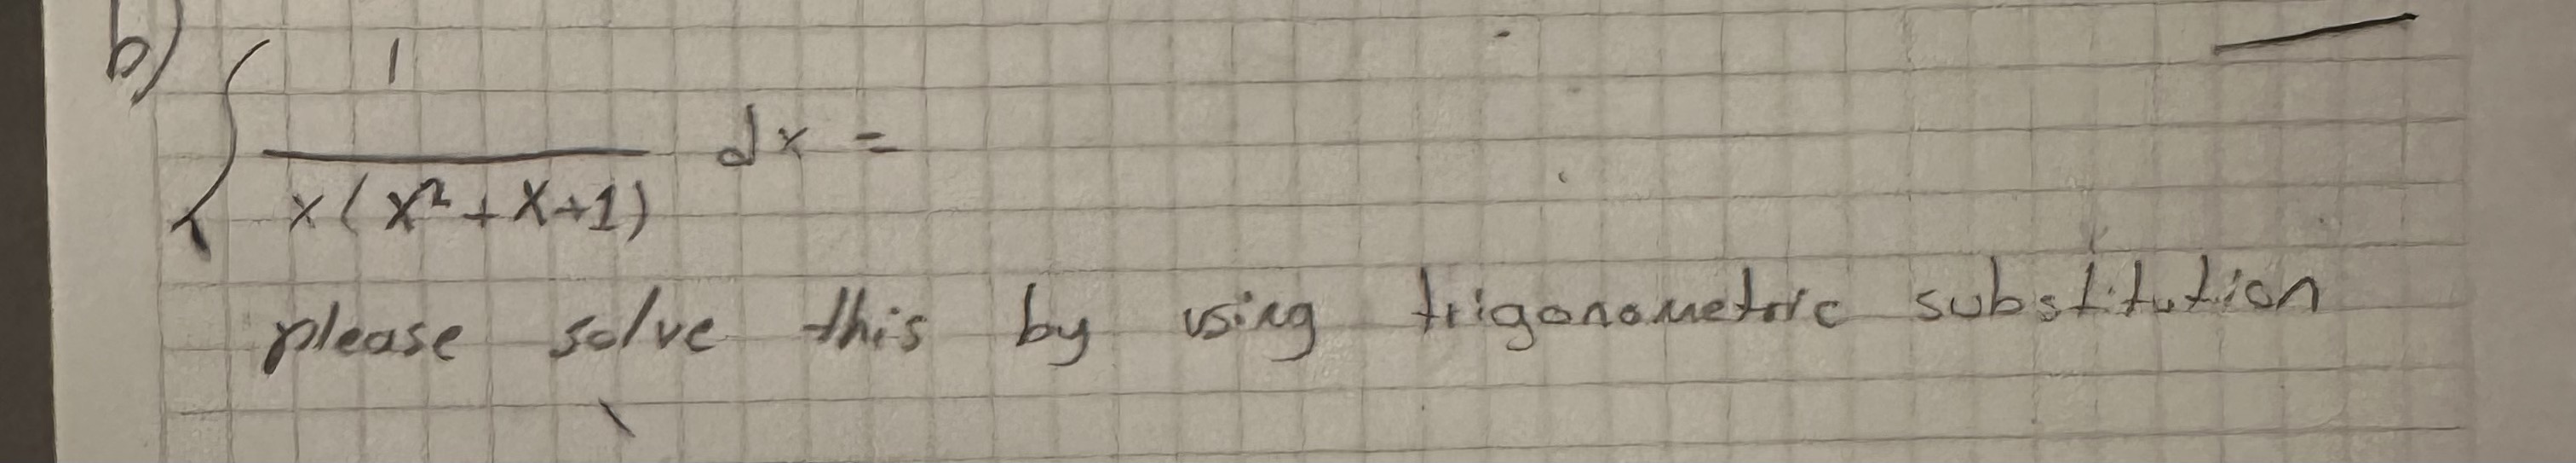 b) ∫ 1 / x(x² + x + 1) dx =
please solve this by using trigonometric substitution